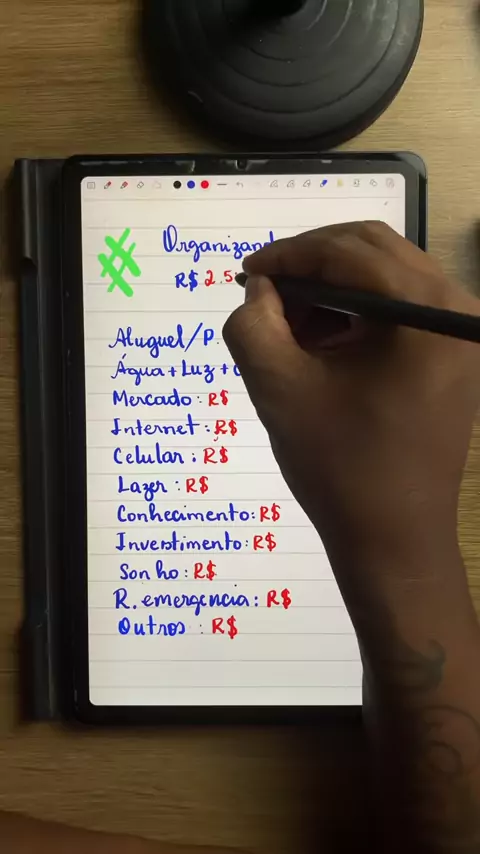 # Organizand
R$ 2.5
Aluguel/P.
Água + Luz +
Mercado: R$
Internet: R$
Celular: R$
Lazer: R$
Conhecimento: R$
Investimento: R$
Sonho: R$
R. emergencia: R$
Outros: R$